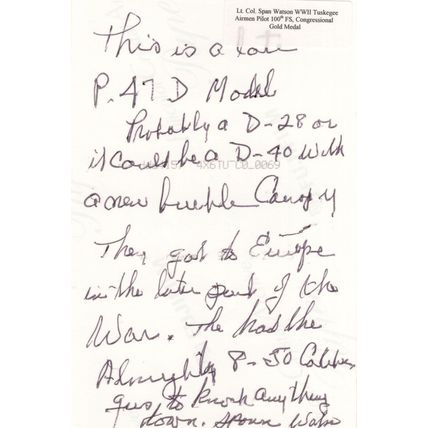 Lt. Col. Span Watson WWII Tuskegee
Airmen Pilot 100th FS, Congressional
Gold Medal
This is a
P.47 D Model
Probably a D-28 or
it could be a D-40 with
4X6TU CO_0069
a new bubble Canopy
They got to Europe
in the later part of the
War. The had the
Almighty 8-50 Caliber
guns to knock anything
down. Spann Watson